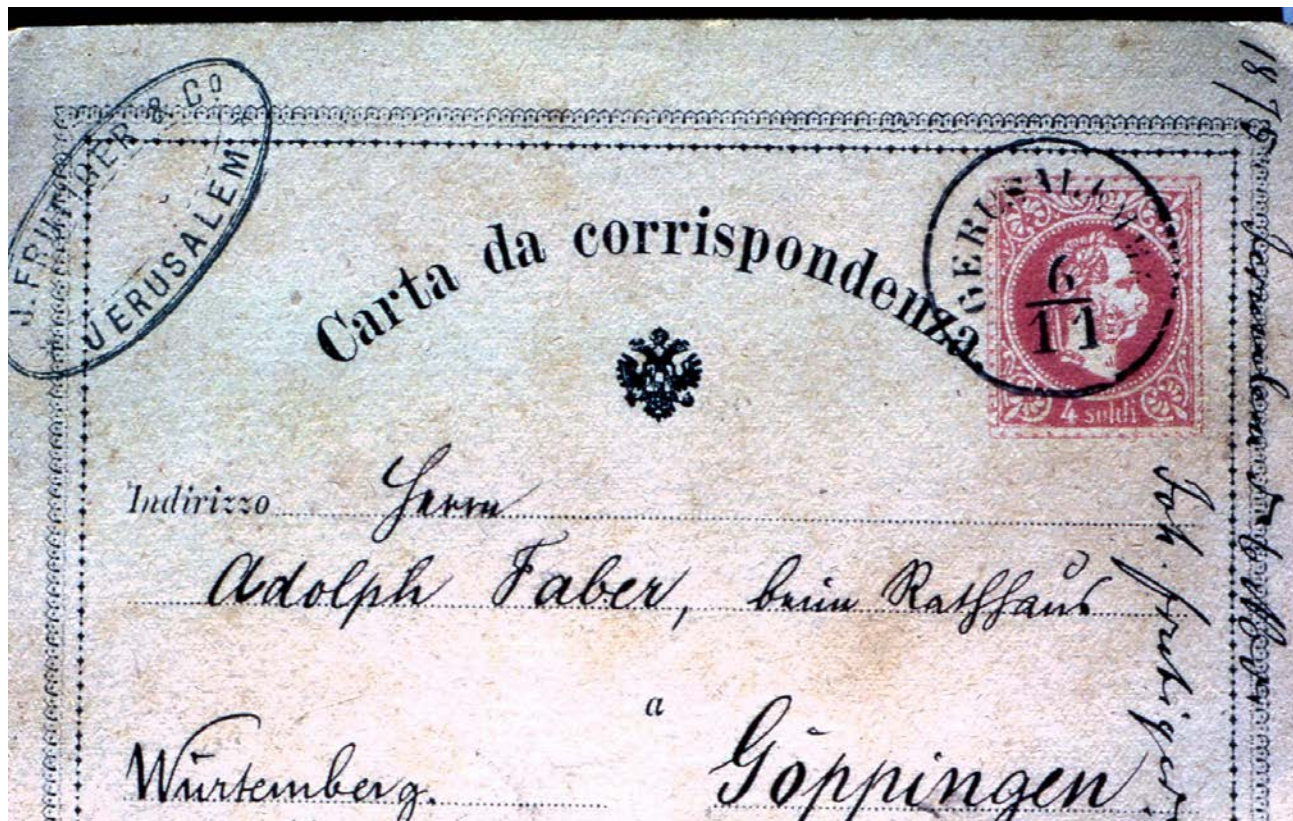 J. FRUTIGER & Co
JERUSALEM
Carta da corrispondenza.
GERUSALEMME
6
11
4 soldi
Indirizzo Herrn
Adolph Faber, beim Rathhaus
a
Würtemberg. Göppingen
1875 Jerusalem
Joh. Frutiger